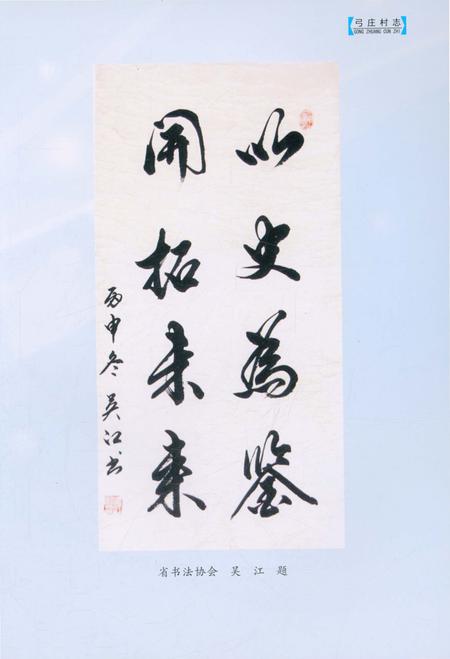 弓庄村志
GONG ZHUANG CUN ZHI
以史為鑒
開拓未来
丙申冬吴江书
省书法协会 吴 江 题